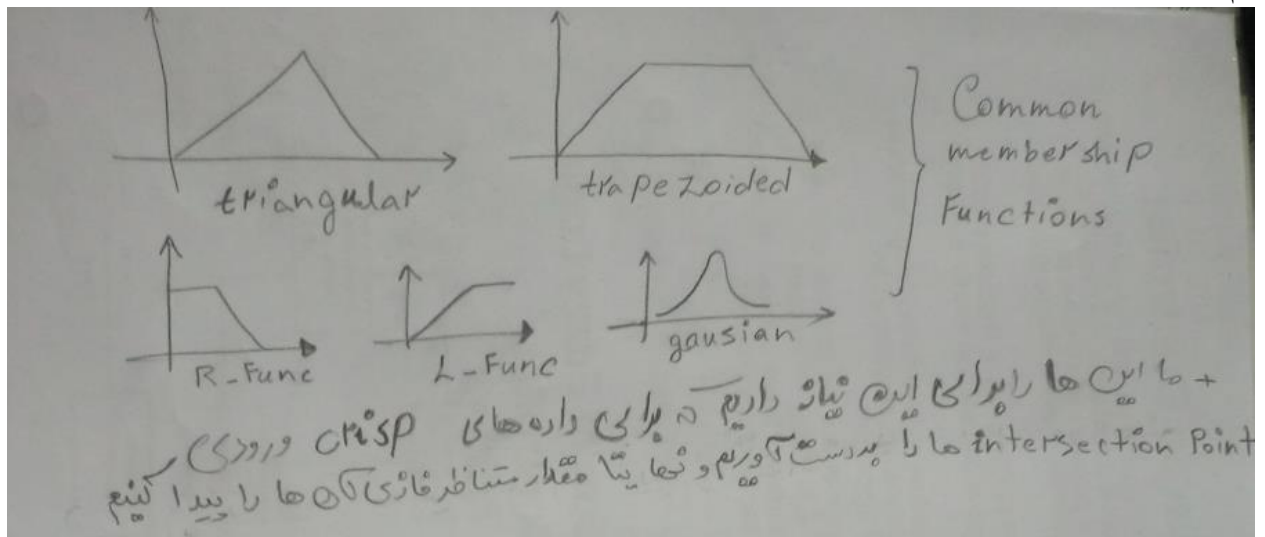 triangular
trapezoided
Common
membership
Functions
R-Func
L-Func
gausian
+ ما این ها را برای این نیاز داریم که برای داده های crisp ورودی
intersection Point ها را بدست آوریم و نهایتا مقدار متناظر فازی آن ها را پیدا کنیم